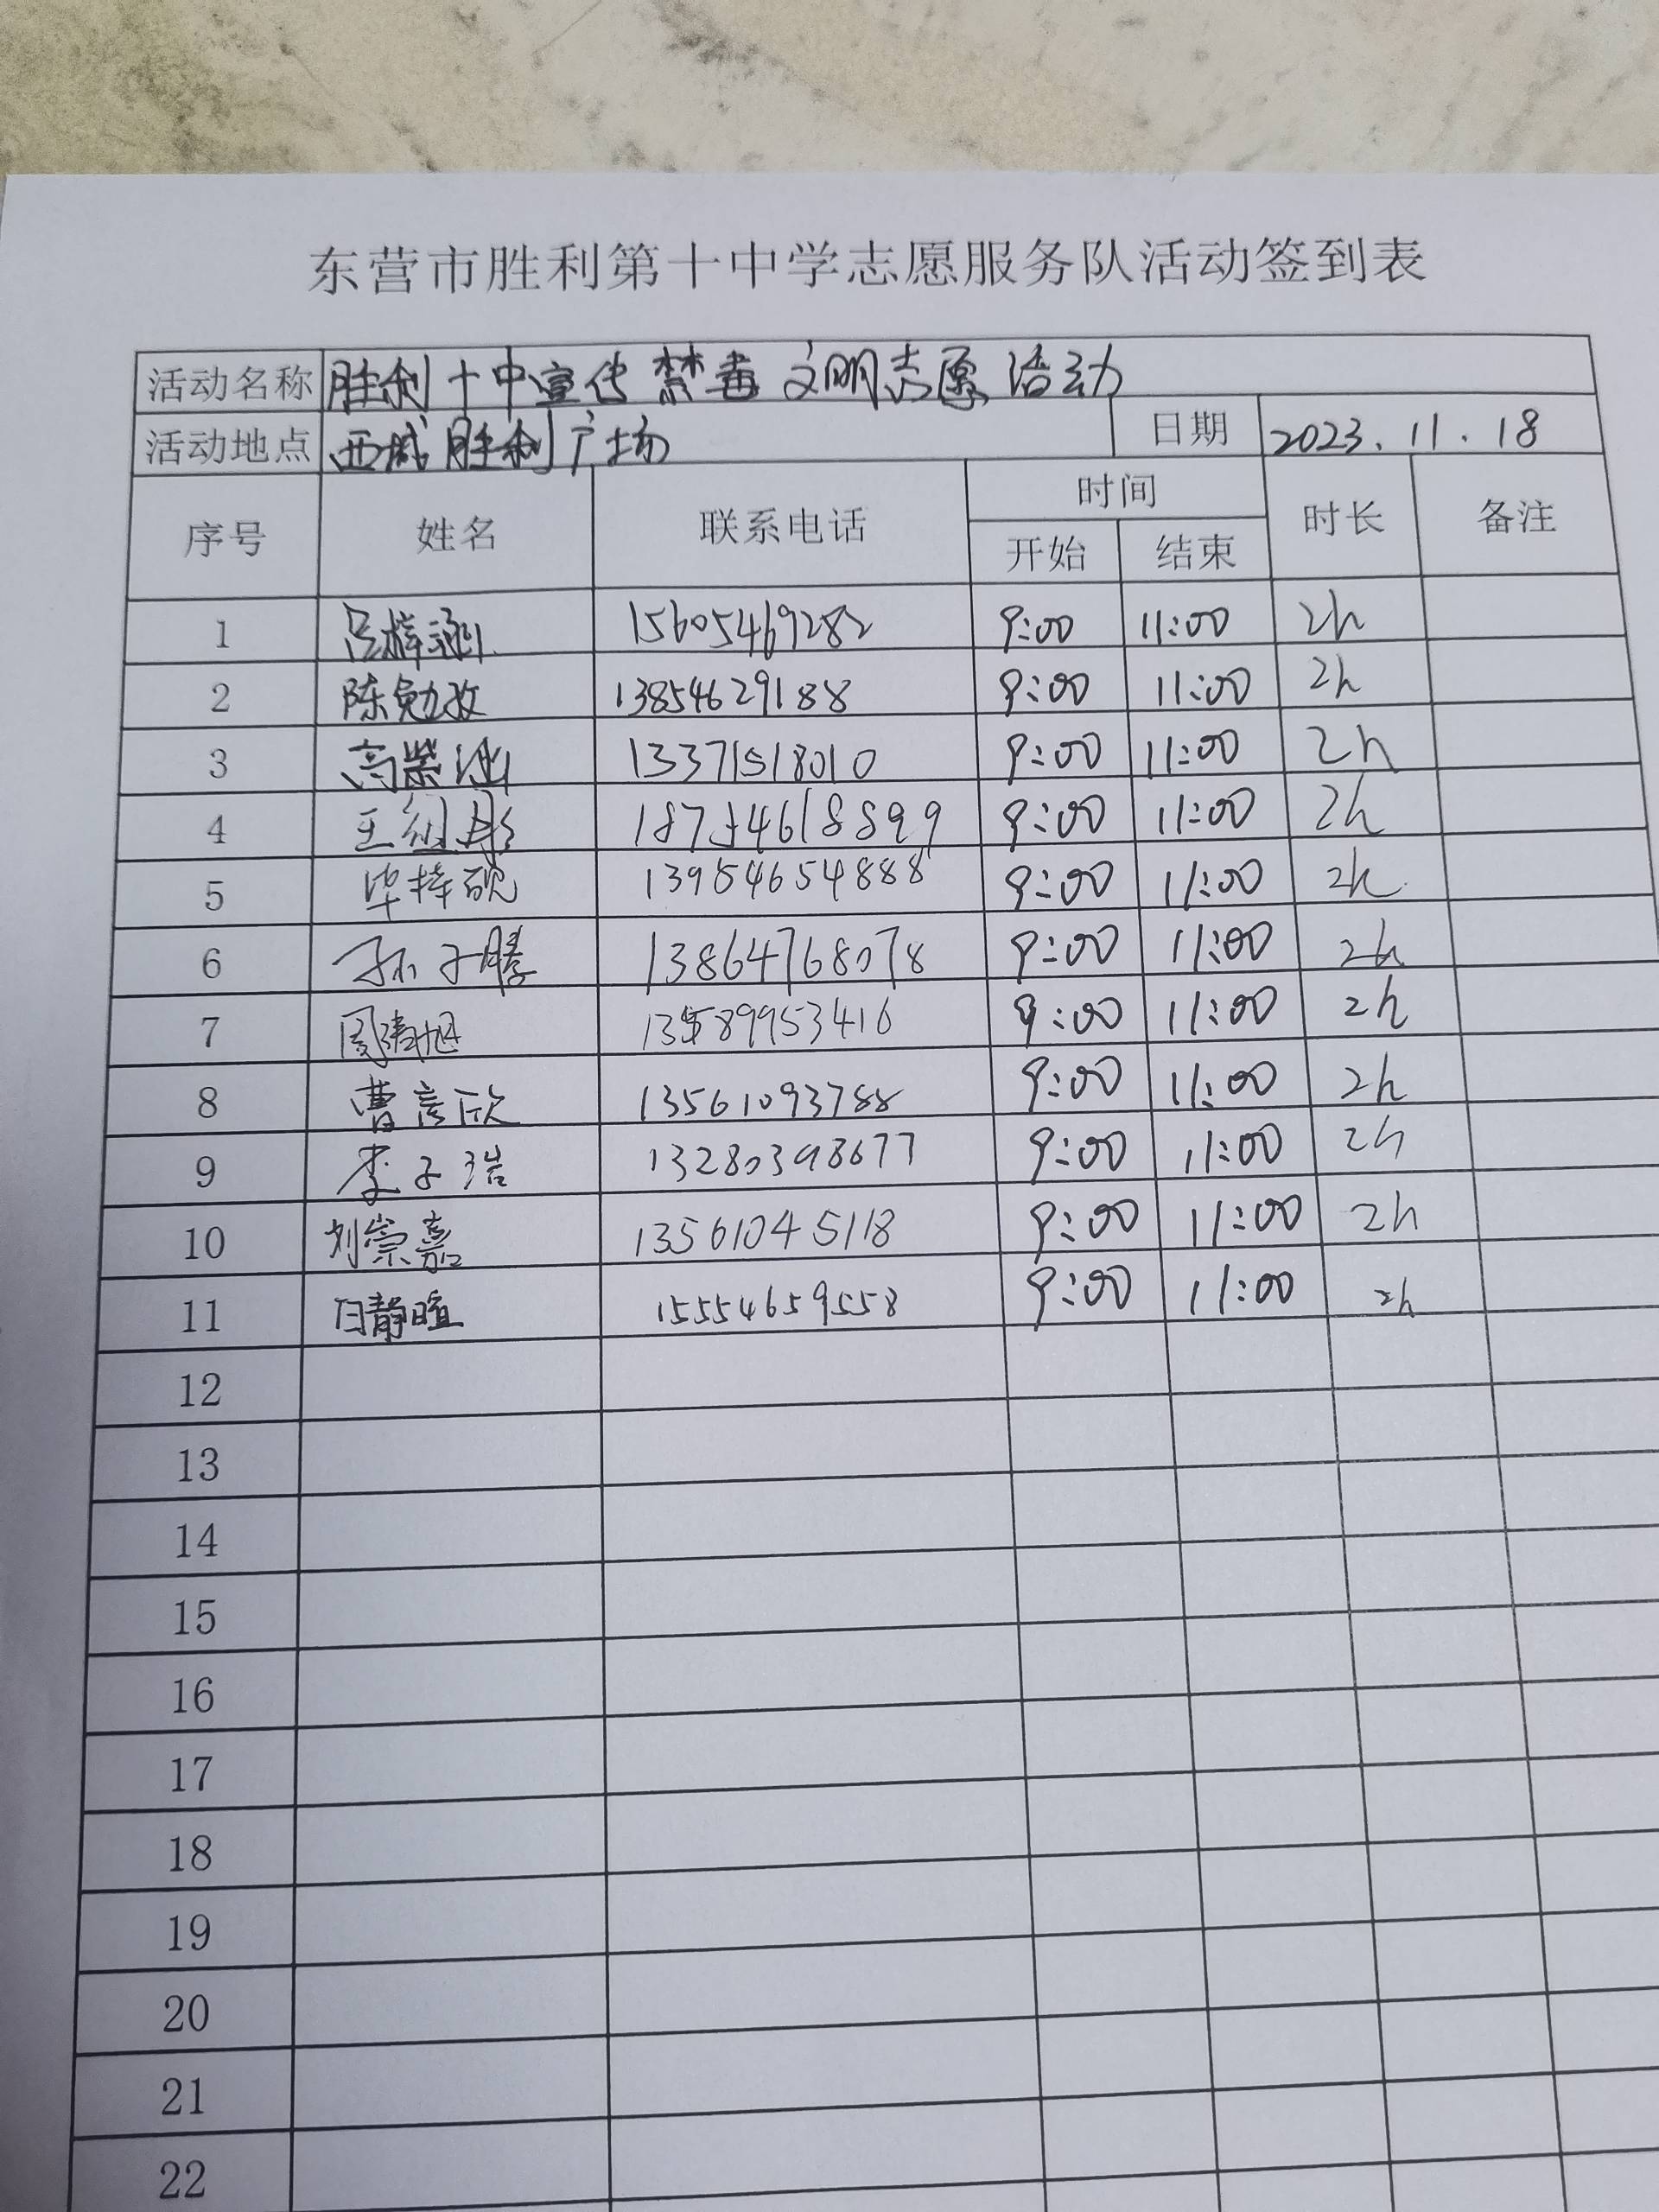 东营市胜利第十中学志愿服务队活动签到表
活动名称 胜利十中宣传禁毒文明志愿活动
活动地点 西城胜利广场 日期 2023.11.18
序号 姓名 联系电话 时间 时长 备注
开始 结束
1 吕梓涵 15605469282 9:00 11:00 2h
2 陈勉孜 13854629188 9:00 11:00 2h
3 高 13371518010 9:00 11:00 2h
4 王 18754618899 9:00 11:00 2h
5 毕梓砚 13954654888 9:00 11:00 2h
6 孙子腾 13864768078 9:00 11:00 2h
7 周 旭 13589953416 9:00 11:00 2h
8 曹彦欣 13561093788 9:00 11:00 2h
9 李子浩 13280398677 9:00 11:00 2h
10 刘崇嘉 13561045118 9:00 11:00 2h
11 白静暄 15554659558 9:00 11:00 2h
12
13
14
15
16
17
18
19
20
21
22